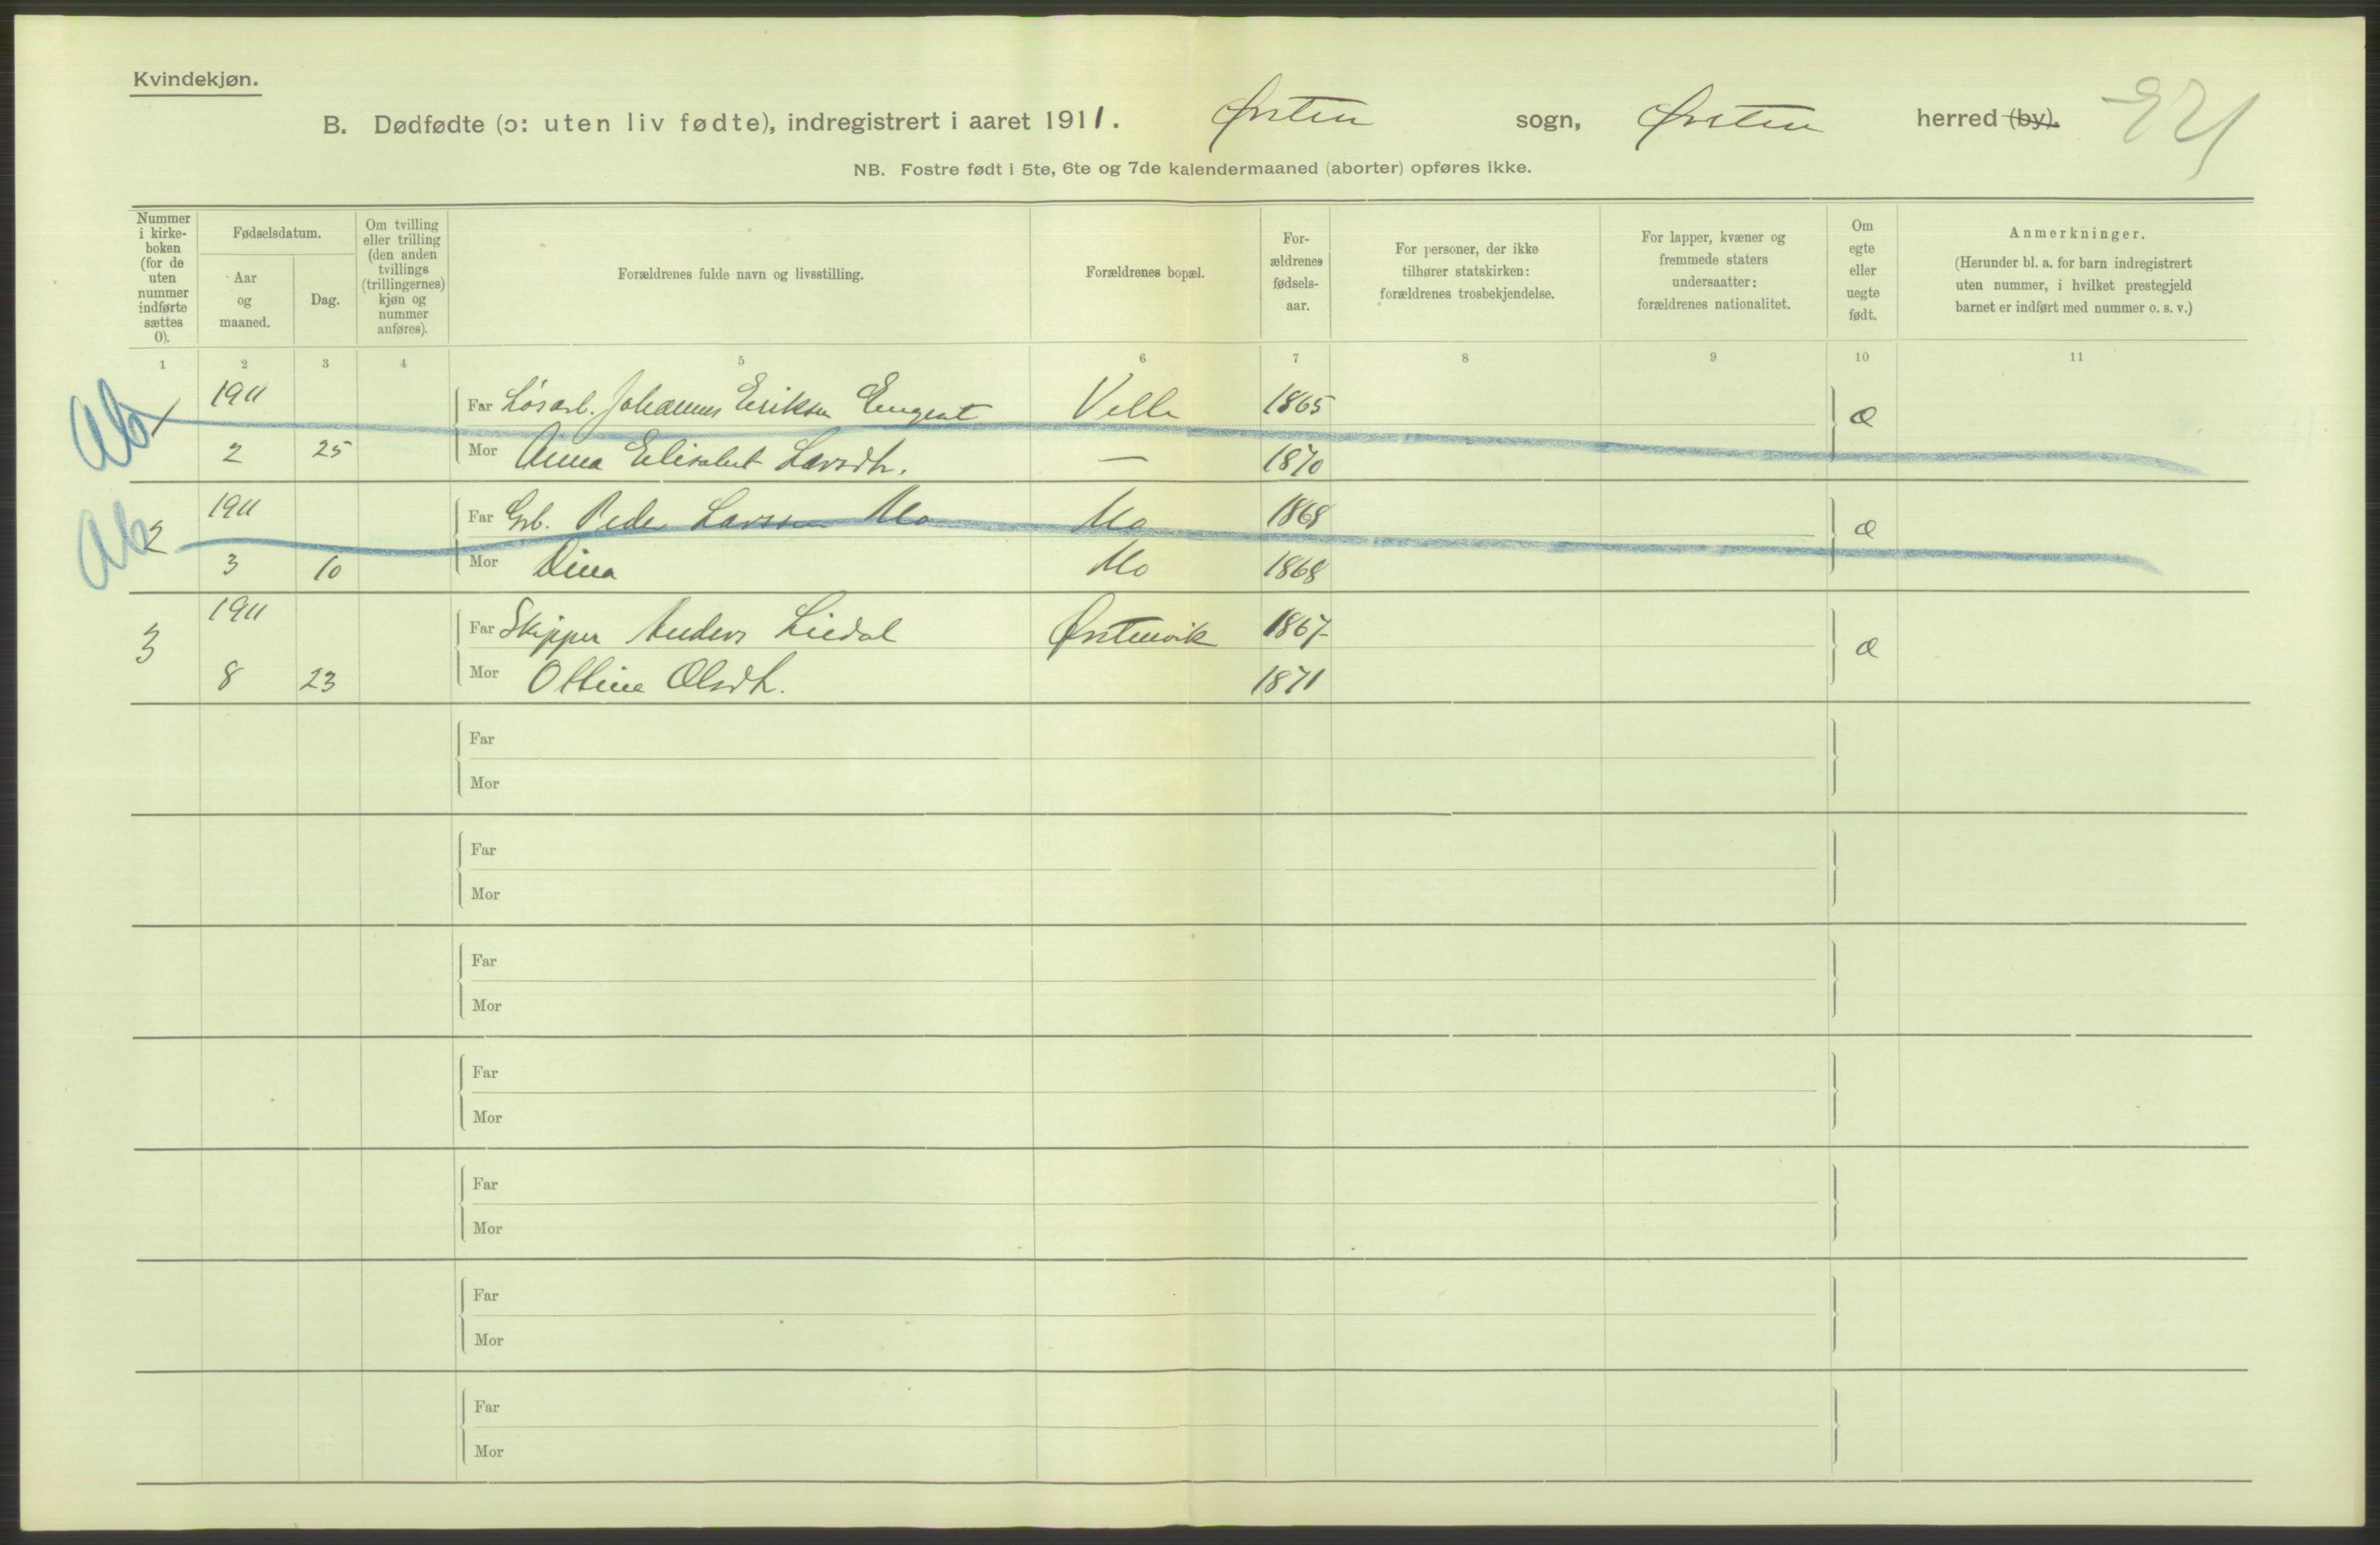 Kvindekjøn.
B. Dødfødte (ɔ: uten liv fødte), indregistrert i aaret 1911. Ørsten sogn, Ørsten herred (by).
NB. Fostre født i 5te, 6te og 7de kalendermaaned (aborter) opføres ikke.
Nummer i kirke-boken (for de uten nummer indførte sættes 0).
Fødselsdatum.
Aar og maaned.
Dag.
Om tvilling eller trilling (den anden tvillings (trillingernes) kjøn og nummer anføres).
Forældrenes fulde navn og livsstilling.
Forældrenes bopæl.
For-ældrenes fødsels-aar.
For personer, der ikke tilhører statskirken: forældrenes trosbekjendelse.
For lapper, kvæner og fremmede staters undersaatter: forældrenes nationalitet.
Om egte eller uegte født.
Anmerkninger.
(Herunder bl. a. for barn indregistrert uten nummer, i hvilket prestegjeld barnet er indført med nummer o. s. v.)
1 2 3 4 5 6 7 8 9 10 11
Ab 1 1911 Far Løsarb. Johannes Eriksen Velle 1865 æ
2 25 Mor Anna Elisabet Larsdtr. — 1870
Ab 2 1911 Far Grb. Peder Larssen Mo Mo 1868 æ
3 10 Mor Dina Mo 1868
3 1911 Far Skipper Anders Liedal Ørstenvik 1867 æ
8 23 Mor Oline Olsdtr. 1871
Far
Mor
Far
Mor
Far
Mor
Far
Mor
Far
Mor
Far
Mor
Far
Mor